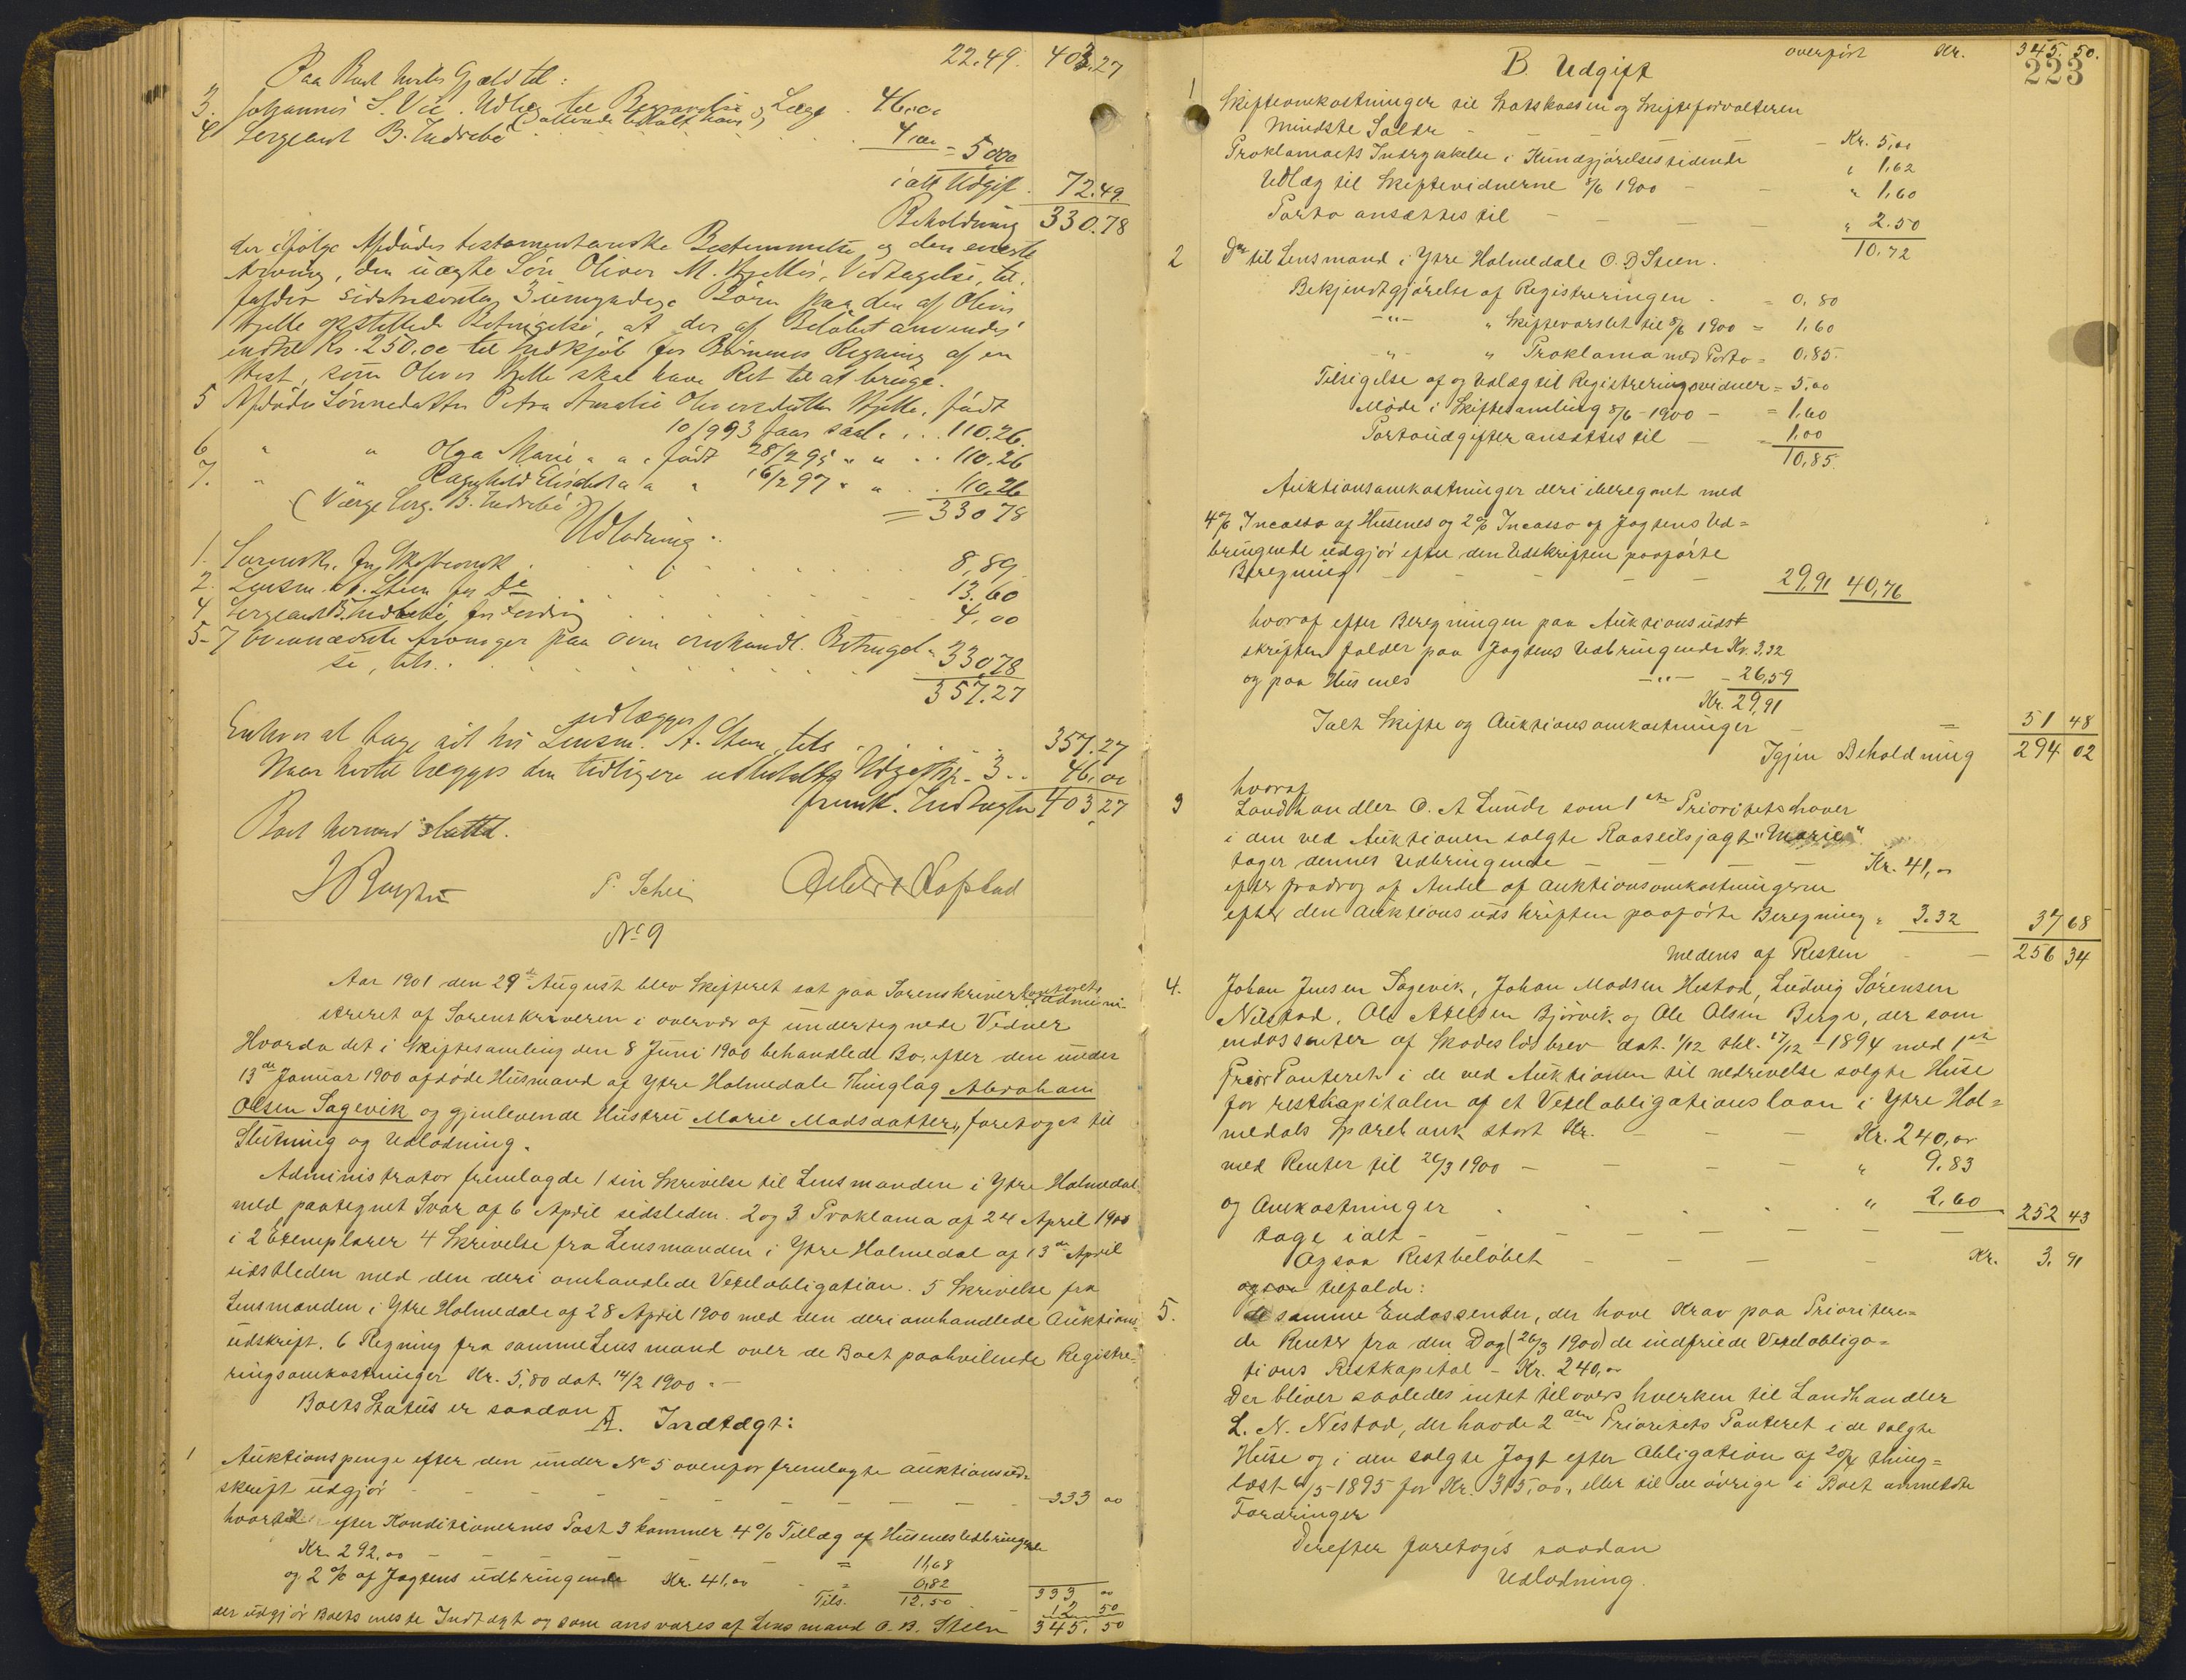 22.49. 403.27
Paa Boet hviler Gjæld til:
3. Johannes S. Vie. Udlæg til Begravelse og Læge . 46.00
(allerede udbetalt ham)
4 Sergeant B. Indrebø . . . . 4,00 = 50.00
i alt Udgift . 72.49.
Beholdning 330.78
der ifølge Afdødes testamentariske Bestemmelse og den eneste
Arving, den uægte Søn Oliver M. Hjelles, Vedtagelse, til-
falder sidstnævntes 3 umyndige Børn paa den af Oliver
Hjelle opstillede Betingelse, at der af Beløbet anvendes
indtil Kr. 250.00 til Indkjøb for Børnenes Regning af en
Hest, som Oliver Hjelle skal have Ret til at bruge.
5 Afdødes Sønnedatter Petra Amalie Oliversdatter Hjelle, født
10/9 93 faar saal. . . 110.26.
6 " " Olga Marie " " født 28/2 95 " " . . 110.26
7. " " Ragnhild Elisabet " " " 16/2 97 " " . . 110.26
(Værge Serg. B. Indrebø) = 330 78
Udlodning:
1. Sorenskr. for Skifteomk. . . . 8,89
2. Lensm. A. Steen for Do . . . 13.60
4 Sergeant B. Indrebø for Fordring . . . 4,00
5-7 Ovennævnte Arvinger paa oven omhandl. Betingel-
se, tils. . . . 330,78
357.27
udlægges
Enhver at tage sit hos Lensm. A. Steen, tils . . . 357.27
Naar hertil lægges den tidligere udbetalte Udgiftsp. 3 . . 46,00
fremk. Indtægten 403,27
Boet hermed sluttet.
P. Schei
No 9
Aar 1901 den 29de August blev Skifteret sat paa Sorenskriverkontoret, admini-
streret af Sorenskriveren i overvær af undertegnede Vidner
Hvorda det i Skiftesamling den 8 Juni 1900 behandlede Bo, efter den under
13de Januar 1900 afdøde Husmand af Ytre Holmedals Thinglag Abraham
Olsen Sagevik og gjenlevende Hustru Marie Madsdatter, foretoges til
Slutning og Udlodning.
Administrator fremlagde 1 sin Skrivelse til Lensmanden i Ytre Holmedal
med paategnet Svar af 6 April sidsleden. 2 og 3 Proklama af 24 April 1900
i 2 Exemplarer 4 Skrivelse fra Lensmanden i Ytre Holmedal af 13de April
sidstleden med den deri omhandlede Vexelobligation. 5 Skrivelse fra
Lensmanden i Ytre Holmedale af 28 April 1900 med den deri omhandlede Auktions-
udskrift. 6 Regning fra samme Lensmand over de Boet paahvilende Registre-
ringsomkostninger Kr. 5,80 dat. 14/2 1900. -
Boets Status er saadan
A. Indtægt:
1 Auktionspenge efter den under No 5 ovenfor fremlagte auktionsud-
skrift udgjør - - - - - - 333 00
hvortil efter Konditionernes Post 3 kommer 4% Tillæg af Husenes Udbringende
Kr. 292,00 - - = 11,68
og 2% af Jagtens udbringende Kr. 41,00 - = 0,82
Tils. 12,50
333 00
12 50
der udgjør Boets meste Indtægt og som ansvares af Lensmand O. B. Steen 345. 50
B. Udgift overført Kr. 345. 50.
223
1 Skifteomkostninger til Statskassen og Skifteforvalteren
mindste Salær - - - - Kr. 5,00
Proklamaets Indrykkelse i Kundgjørelsestidende " 1,62
Udlæg til Skiftevidnerne 8/6 1900 - - " 1,60
Porto ansættes til - - - " 2.50
10,72
2 Do til Lensmand i Ytre Holmedale O. B Steen.
Bekjendtgjørelse af Registreringen - = 0,80
-"- " Skiftevarslet til 8/6 1900 = 1,60
-"- " Proklama med Porto = 0,85.
Tilsigelse af og Udlæg til Registreringsvidner = 5,00
Møde i Skiftesamling 8/6 - 1900 - = 1,60
Portoudgifter ansættes til - = 1,00
10,85.
Auktionsomkostninger deri iberegnet med
4% Incasso af Husenes og 2% Incasso af Jagtens Ud-
bringende udgjør efter den Udskriften paaførte
Beregning - - - - - 29,91 40,76
hvoraf efter Beregningen paa Auktionsudst
skriften falder paa Jagtens Udbringende Kr. 3,32
og paa Husenes -"- - 26,59
Kr. 29,91
Ialt Skifte og Auktionsomkostninger = 51 48
Igjen Beholdning 294 02
hvoraf
3 Landhandler O. A Lunde som 1ste Prioritetshaver
i den ved Auktionen solgte Raaseilsjagt "Marie"
tager dennes Udbringende - - - Kr. 41,00
efter fradrag af Andel af auktionsomkostningerne
efter den auktionsudskriften paaførte Beregning " 3.32 37 68
medens af Resten - - 256 34
4. Johan Jensen Sagevik, Johan Madsen Hestad, Ludvig Sørensen
Nilstad, Ole Axelsen Bjørvik og Ole Olsen Berge, der som
endossenter af Skadesløsbrev dat. 1/12 thl. 17/12 - 1894 med 1ste
Prior Panteret i de ved Auktionen til nedrivelse solgte Huse
for restkapitalen af et Vexelobligationslaan i Ytre Hol-
medals Sparebank stort Kr. - - - Kr. 240,00
med Renter til 26/3 1900 - - - - " 9.83
og Omkostninger . . . . " 2,60 252 43
tage ialt - - - - -
Ogsaa Restbeløbet - - - - Kr. 3,91
ogsaa tilfalde:
5. de samme Endossenter, der have Krav paa Prioritere-
de Renter fra den Dag (26/3 1900) de indfriede Vexelobliga-
tions Restkapital - Kr. 240,00
Der bliver saaledes intet tilovers hverken til Landhandler
L. N. Nestad, der havde 2den Prioritets Panteret i de solgte
Huse og i den solgte Jagt efter Obligation af 20/4 thing-
læst 6/5 - 1895 for Kr. 315,00, eller til de øvrige i Boet anmeldte
Fordringer
Derefter foretoges saadan
Udlodning.